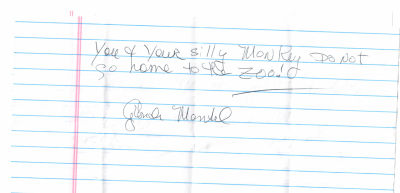 You & Your silly Monkey Do Not
go home to the Zoo!